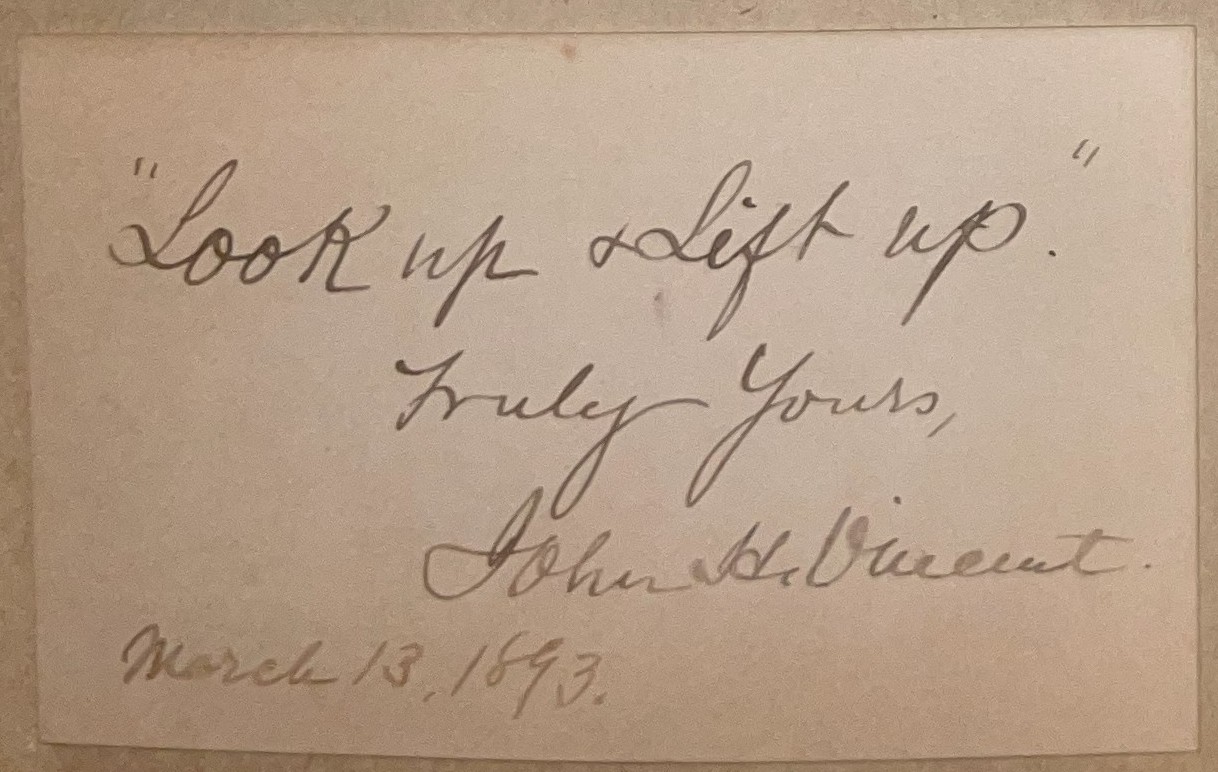 "Look up & Lift up."
Truly Yours,
John H. Vincent.
March 13, 1893.